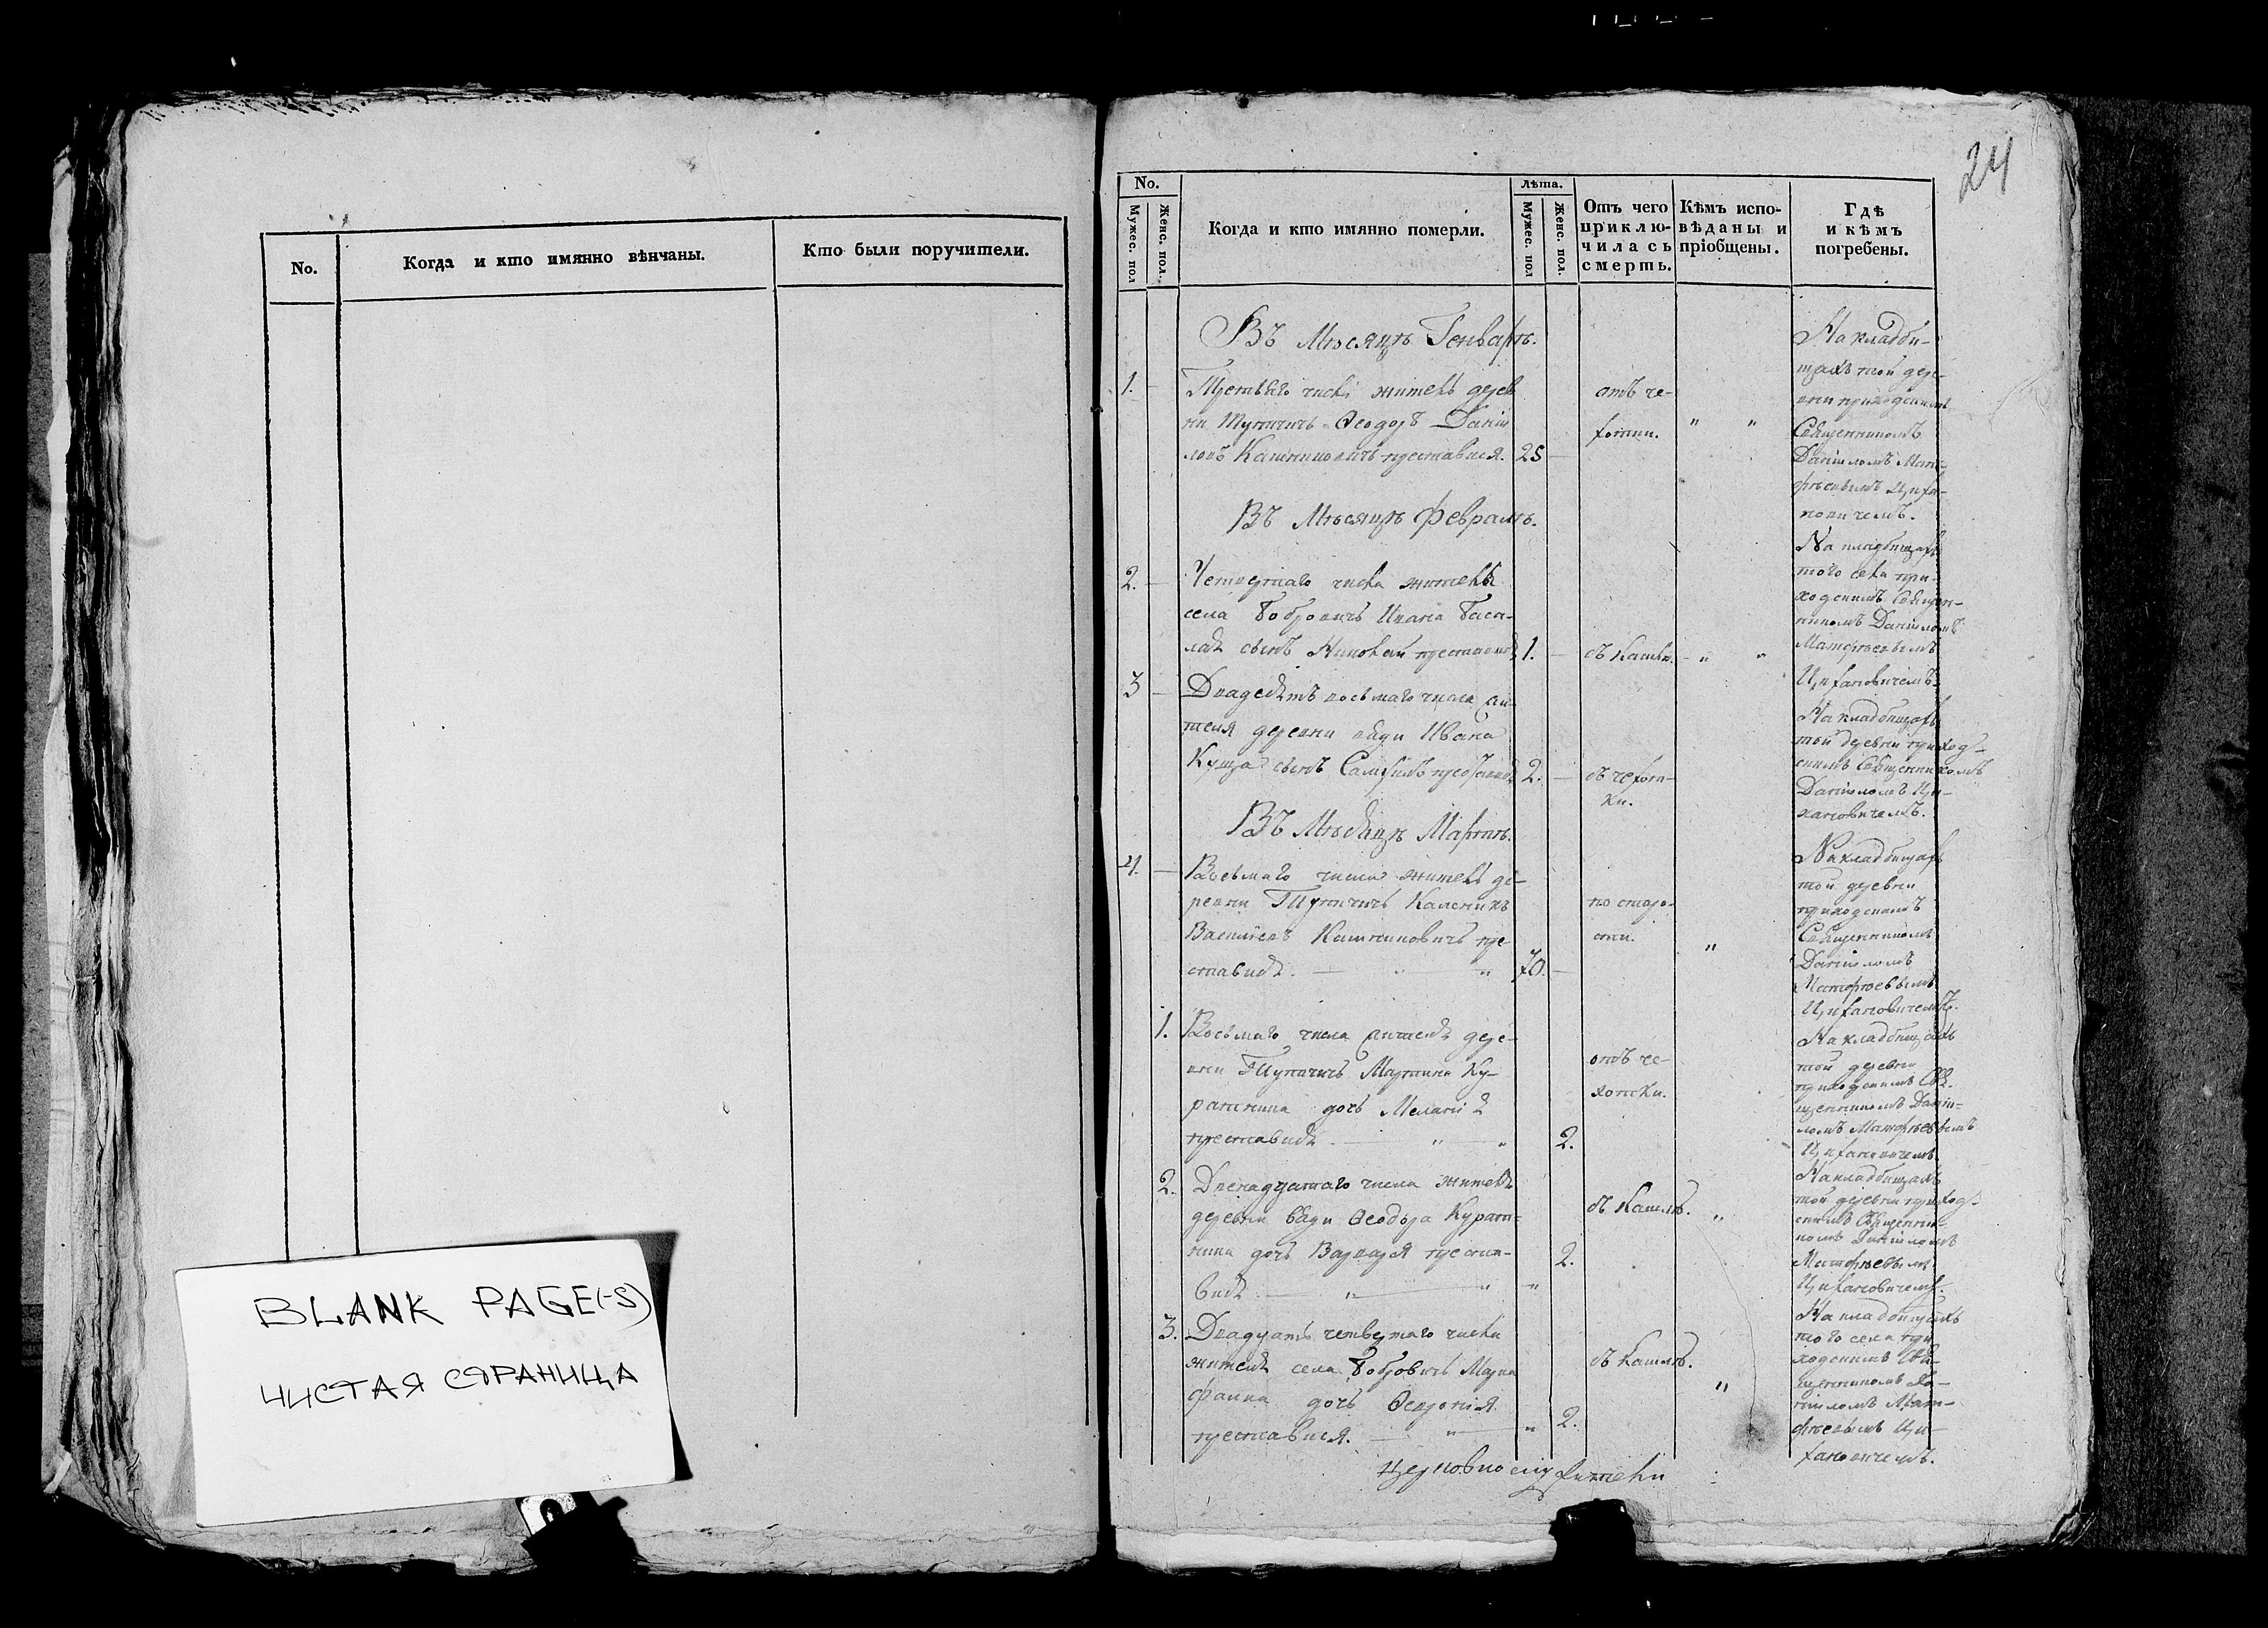 No.
Когда и кто имянно вѣнчаны.
Кто были поручители.
BLANK PAGE(-S)
ЧИСТАЯ СТРАНИЦА
24
No.
Мужес. пол
Женс. пол.
Когда и кто имянно померли.
Лѣта.
Мужес. пол
Женс. пол.
Отъ чего
приклю-
чилась
смерть.
Кѣмъ испо-
вѣданы и
пріобщены.
Гдѣ
и кѣмъ
погребены.
Въ Мѣсяцѣ Генварѣ.
1.
Третьяго числа житель дерев
ни Тупичичъ Ѳеодоръ Даніи
ловъ преставися. 25
отъ че-
хотки.
На кладби-
щахъ той дер-
вни приходскимъ
Священникомъ
Даніиломъ Мат-
фѣевымъ Циха-
новичемъ.
Въ Мѣсяцѣ Февралѣ.
2.
Четвертаго числа жителя
села Бобровичъ Ивана
сынъ Николай преставися 1.
съ кашлю.
На кладбищахъ
того села при-
ходскимъ Священ-
никомъ Даніиломъ
Матфѣевымъ
Цихановичемъ.
3
Двадесять восьмаго числа жи
теля деревни Вяди Ивана
Куцца сынъ преставися 2.
съ чехот-
ки.
На кладбищахъ
той деревни приход-
скимъ Священникомъ
Даніиломъ Ци-
хановичемъ.
Въ Мѣсяцѣ Мартѣ.
4.
Восьмаго числа житель де-
ревни Тупичичъ Каленикъ
Василіевъ пре
ставися. 70.
по старо-
сти.
На кладбищахъ
той деревни
приходскимъ
Священникомъ
Даніиломъ
Матфѣевымъ
Цихановичемъ.
1.
Восьмаго числа жителя дере-
вни Тупичичъ Мартина Ку-
ратника дочь Меланія
преставися 2.
отъ че-
хотки.
На кладбищахъ
той деревни
приходскимъ Свя-
щенникомъ Даніи-
ломъ Матфѣевымъ
Цихановичемъ
2.
Двенадцатаго числа жителя
деревни Вяди Ѳеодора Курат-
ника дочь Варвара преста- 2.
вися
съ кашлю.
На кладбищахъ
той деревни приход-
скимъ Священни-
комъ Даніиломъ
Матфѣевымъ
Цихановичемъ.
3.
Двадцать четвертаго числа
жителя села Бобровичъ Марка
дочь Ѳевронія
преставися. 2.
съ кашлю.
На кладбищахъ
того села при
ходскимъ Свя-
щенникомъ Да-
ніиломъ Мат-
фѣевымъ Ци-
хановичемъ.